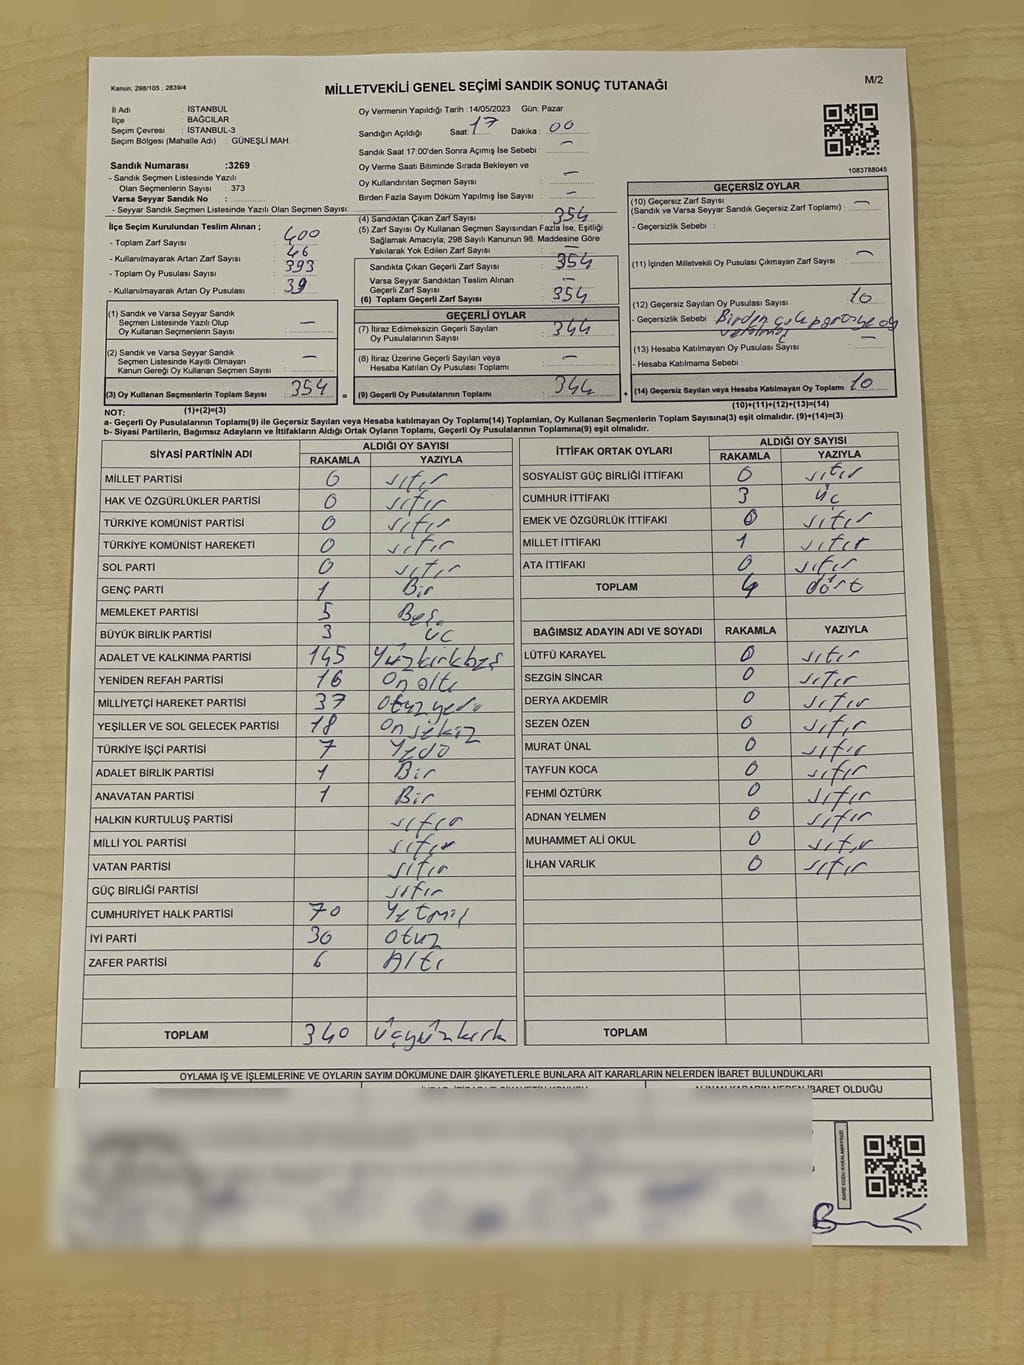 Kanun, 298/105 , 2839/4
MİLLETVEKİLİ GENEL SEÇİMİ SANDIK SONUÇ TUTANAĞI
M/2
İl Adı : İSTANBUL
İlçe : BAĞCILAR
Seçim Çevresi : İSTANBUL-3
Seçim Bölgesi (Mahalle Adı) : GÜNEŞLİ MAH.
Sandık Numarası :3269
- Sandık Seçmen Listesinde Yazılı
Olan Seçmenlerin Sayısı : 373
Varsa Seyyar Sandık No :
- Seyyar Sandık Seçmen Listesinde Yazılı Olan Seçmen Sayısı:
İlçe Seçim Kurulundan Teslim Alınan ;
- Toplam Zarf Sayısı : 400
- Kullanılmayarak Artan Zarf Sayısı : 46
- Toplam Oy Pusulası Sayısı : 393
- Kullanılmayarak Artan Oy Pusulası : 39
(1) Sandık ve Varsa Seyyar Sandık
Seçmen Listesinde Yazılı Olup
Oy Kullanan Seçmenlerin Sayısı : —
(2) Sandık ve Varsa Seyyar Sandık
Seçmen Listesinde Kayıtlı Olmayan
Kanun Gereği Oy Kullanan Seçmen Sayısı : —
(3) Oy Kullanan Seçmenlerin Toplam Sayısı : 354 =
Oy Vermenin Yapıldığı Tarih : 14/05/2023 Gün: Pazar
Sandığın Açıldığı Saat: 17 Dakika : 00
Sandık Saat 17:00'den Sonra Açımış İse Sebebi : —
Oy Verme Saati Bitiminde Sırada Bekleyen ve
Oy Kullandırılan Seçmen Sayısı : —
Birden Fazla Sayım Döküm Yapılmış İse Sayısı : —
(4) Sandıktan Çıkan Zarf Sayısı : 354
(5) Zarf Sayısı Oy Kullanan Seçmen Sayısından Fazla İse, Eşitliği
Sağlamak Amacıyla; 298 Sayılı Kanunun 98. Maddesine Göre
Yakılarak Yok Edilen Zarf Sayısı : —
Sandıkta Çıkan Geçerli Zarf Sayısı : 354
Varsa Seyyar Sandıktan Teslim Alınan
Geçerli Zarf Sayısı : —
(6) Toplam Geçerli Zarf Sayısı : 354
GEÇERLİ OYLAR
(7) İtiraz Edilmeksizin Geçerli Sayılan
Oy Pusulalarının Sayısı : 344
(8) İtiraz Üzerine Geçerli Sayılan veya
Hesaba Katılan Oy Pusulası Toplamı : —
(9) Geçerli Oy Pusulalarının Toplamı : 344 +
1083788045
GEÇERSİZ OYLAR
(10) Geçersiz Zarf Sayısı : —
(Sandık ve Varsa Seyyar Sandık Geçersiz Zarf Toplamı)
- Geçersizlik Sebebi :
(11) İçinden Milletvekili Oy Pusulası Çıkmayan Zarf Sayısı : —
(12) Geçersiz Sayılan Oy Pusulası Sayısı : 10
- Geçersizlik Sebebi : Birden çok partiye oy
(13) Hesaba Katılmayan Oy Pusulası Sayısı : —
- Hesaba Katılmama Sebebi :
(14) Geçersiz Sayılan veya Hesaba Katılmayan Oy Toplamı : 10
NOT: (1)+(2)=(3) (10)+(11)+(12)+(13)=(14)
a- Geçerli Oy Pusulalarının Toplamı(9) ile Geçersiz Sayılan veya Hesaba Katılmayan Oy Toplamı(14) Toplamları, Oy Kullanan Seçmenlerin Toplam Sayısına(3) eşit olmalıdır. (9)+(14)=(3)
b- Siyasi Partilerin, Bağımsız Adayların ve İttifakların Aldığı Ortak Oyların Toplamı, Geçerli Oy Pusulalarının Toplamına(9) eşit olmalıdır.
SİYASİ PARTİNİN ADI ALDIĞI OY SAYISI
RAKAMLA YAZIYLA
MİLLET PARTİSİ 0 sıfır
HAK VE ÖZGÜRLÜKLER PARTİSİ 0 sıfır
TÜRKİYE KOMÜNİST PARTİSİ 0 sıfır
TÜRKİYE KOMÜNİST HAREKETİ 0 sıfır
SOL PARTİ 0 sıfır
GENÇ PARTİ 1 Bir
MEMLEKET PARTİSİ 5 Beş
BÜYÜK BİRLİK PARTİSİ 3 üç
ADALET VE KALKINMA PARTİSİ 145 Yüzkırkbeş
YENİDEN REFAH PARTİSİ 16 On altı
MİLLİYETÇİ HAREKET PARTİSİ 37 Otuz yedi
YEŞİLLER VE SOL GELECEK PARTİSİ 18 On sekiz
TÜRKİYE İŞÇİ PARTİSİ 7 Yedi
ADALET BİRLİK PARTİSİ 1 Bir
ANAVATAN PARTİSİ 1 Bir
HALKIN KURTULUŞ PARTİSİ sıfır
MİLLİ YOL PARTİSİ sıfır
VATAN PARTİSİ sıfır
GÜÇ BİRLİĞİ PARTİSİ sıfır
CUMHURİYET HALK PARTİSİ 70 Yetmiş
İYİ PARTİ 30 Otuz
ZAFER PARTİSİ 6 Altı
TOPLAM 340 üçyüzkırk
İTTİFAK ORTAK OYLARI ALDIĞI OY SAYISI
RAKAMLA YAZIYLA
SOSYALİST GÜÇ BİRLİĞİ İTTİFAKI 0 sıfır
CUMHUR İTTİFAKI 3 üç
EMEK VE ÖZGÜRLÜK İTTİFAKI 0 sıfır
MİLLET İTTİFAKI 1 sıfır
ATA İTTİFAKI 0 sıfır
TOPLAM 4 dört
BAĞIMSIZ ADAYIN ADI VE SOYADI RAKAMLA YAZIYLA
LÜTFÜ KARAYEL 0 sıfır
SEZGİN SİNCAR 0 sıfır
DERYA AKDEMİR 0 sıfır
SEZEN ÖZEN 0 sıfır
MURAT ÜNAL 0 sıfır
TAYFUN KOCA 0 sıfır
FEHMİ ÖZTÜRK 0 sıfır
ADNAN YELMEN 0 sıfır
MUHAMMET ALİ OKUL 0 sıfır
İLHAN VARLIK 0 sıfır
TOPLAM
OYLAMA İŞ VE İŞLEMLERİNE VE OYLARIN SAYIM DÖKÜMÜNE DAİR ŞİKAYETLERLE BUNLARA AİT KARARLARIN NELERDEN İBARET BULUNDUKLARI
ALINAN KARARIN NEDEN İBARET OLDUĞU
KARE KODU KARALAMAYINIZ!